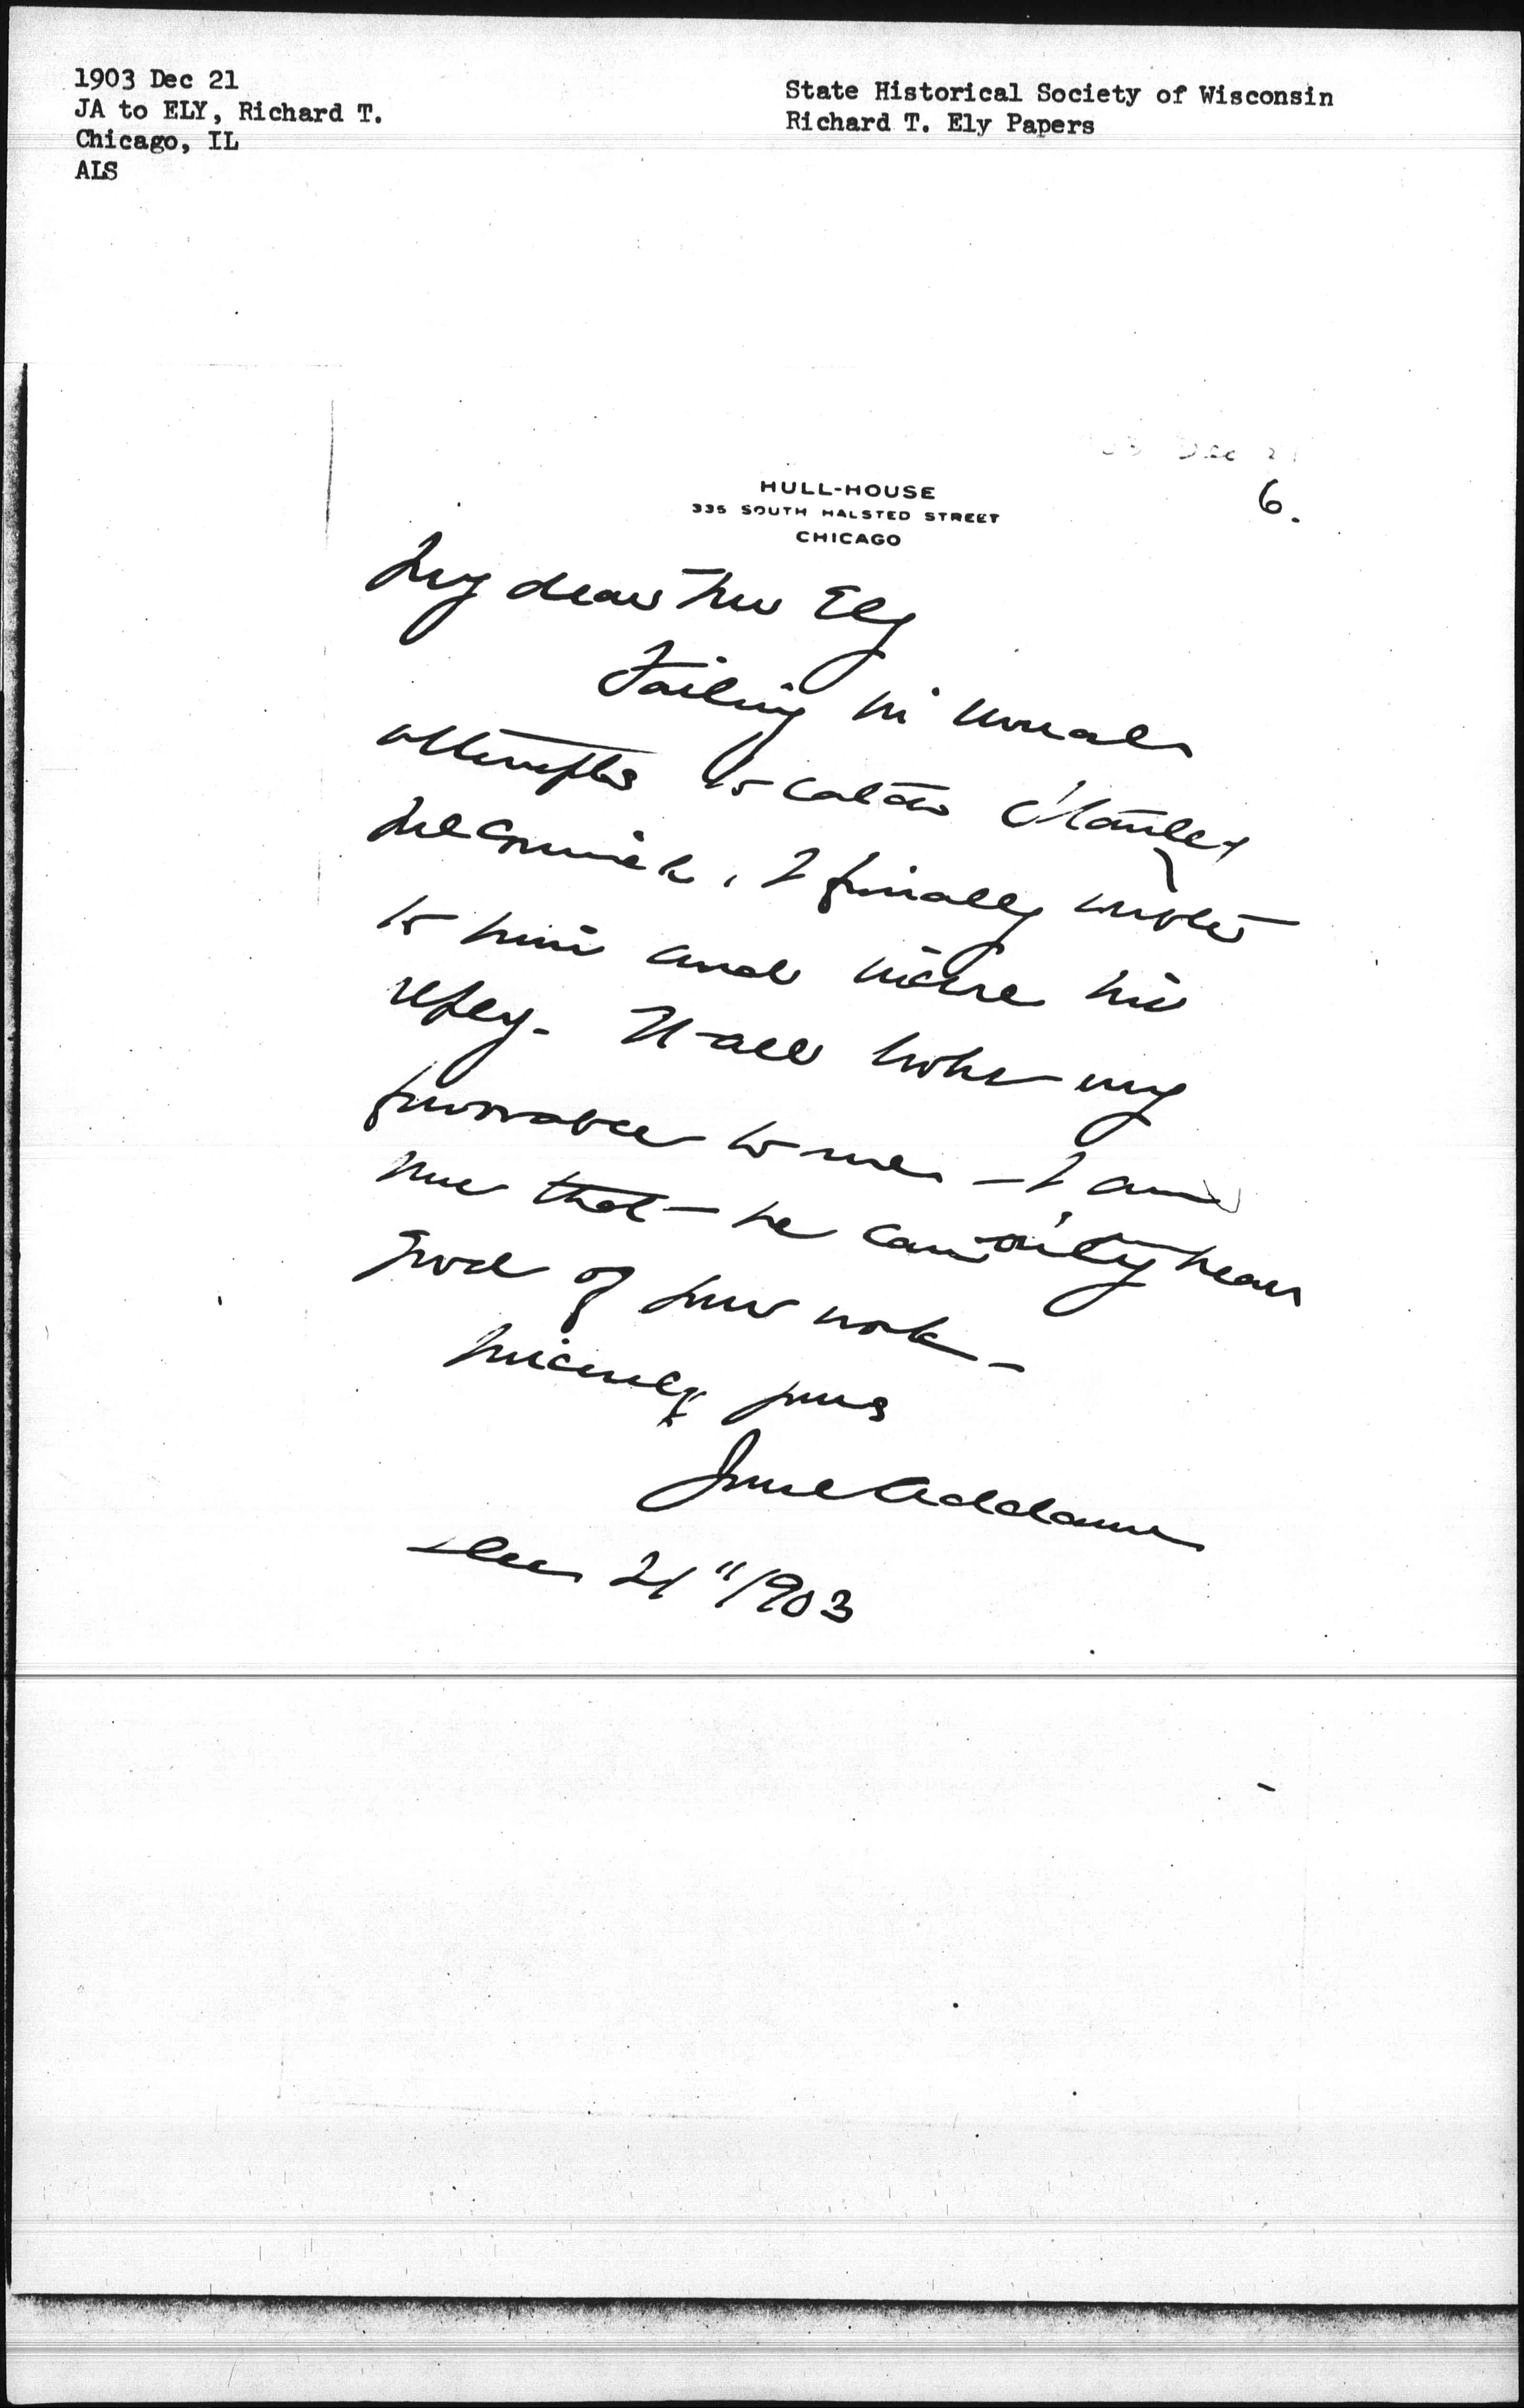 1903 Dec 21
JA to ELY, Richard T.
Chicago, IL
ALS
State Historical Society of Wisconsin
Richard T. Ely Papers
03 Dec 21
6.
HULL-HOUSE
335 SOUTH HALSTED STREET
CHICAGO
My dear Mr Ely
Failing in several
attempts to catch Stanley
McCormick, I finally wrote
to him and enclose his
reply. It all looks very
favorable to me – I am
sure that he can only hear
good of your work –
Sincerely yours
Jane Addams
Dec 21" 1903